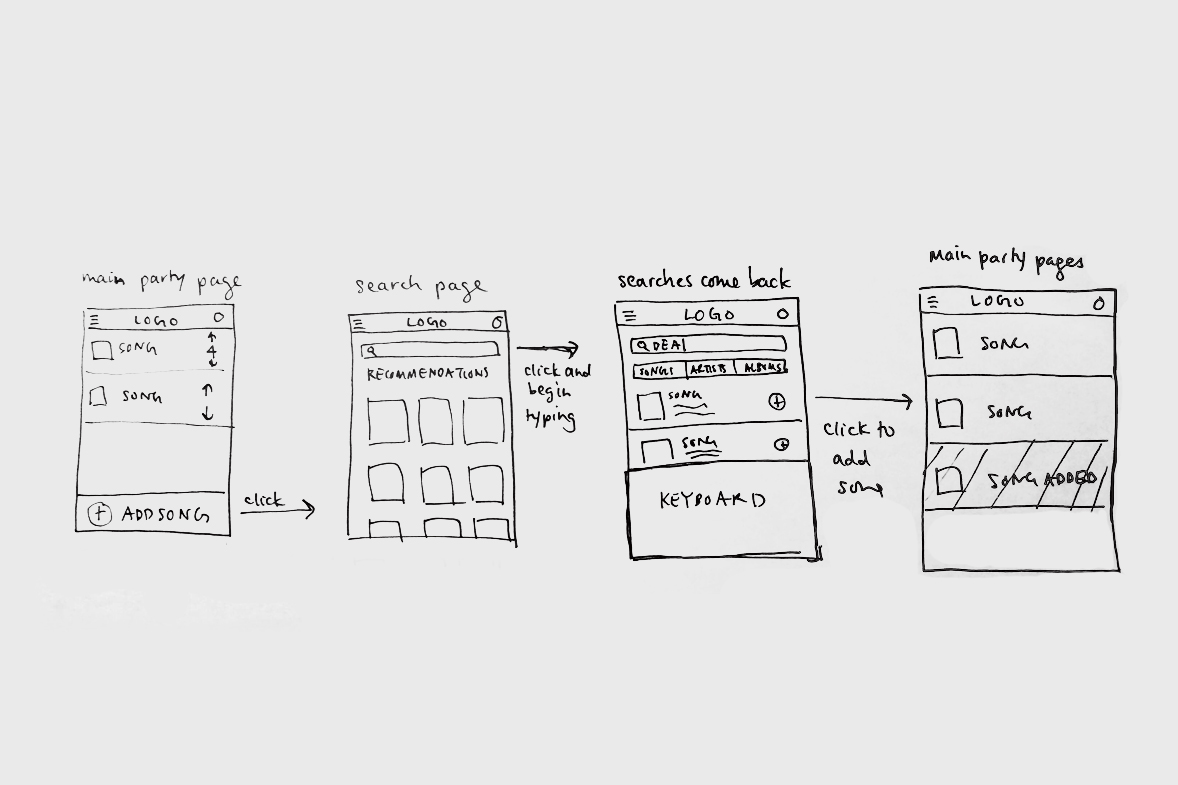 main party page
LOGO
SONG
4
SONG
ADD SONG
click
search page
LOGO
RECOMMENDATIONS
click and
begin
typing
searches come back
LOGO
DEA
SONGS ARTISTS ALBUMS
SONG
SONG
KEYBOARD
click to
add
song
main party pages
LOGO
SONG
SONG
SONG ADDED